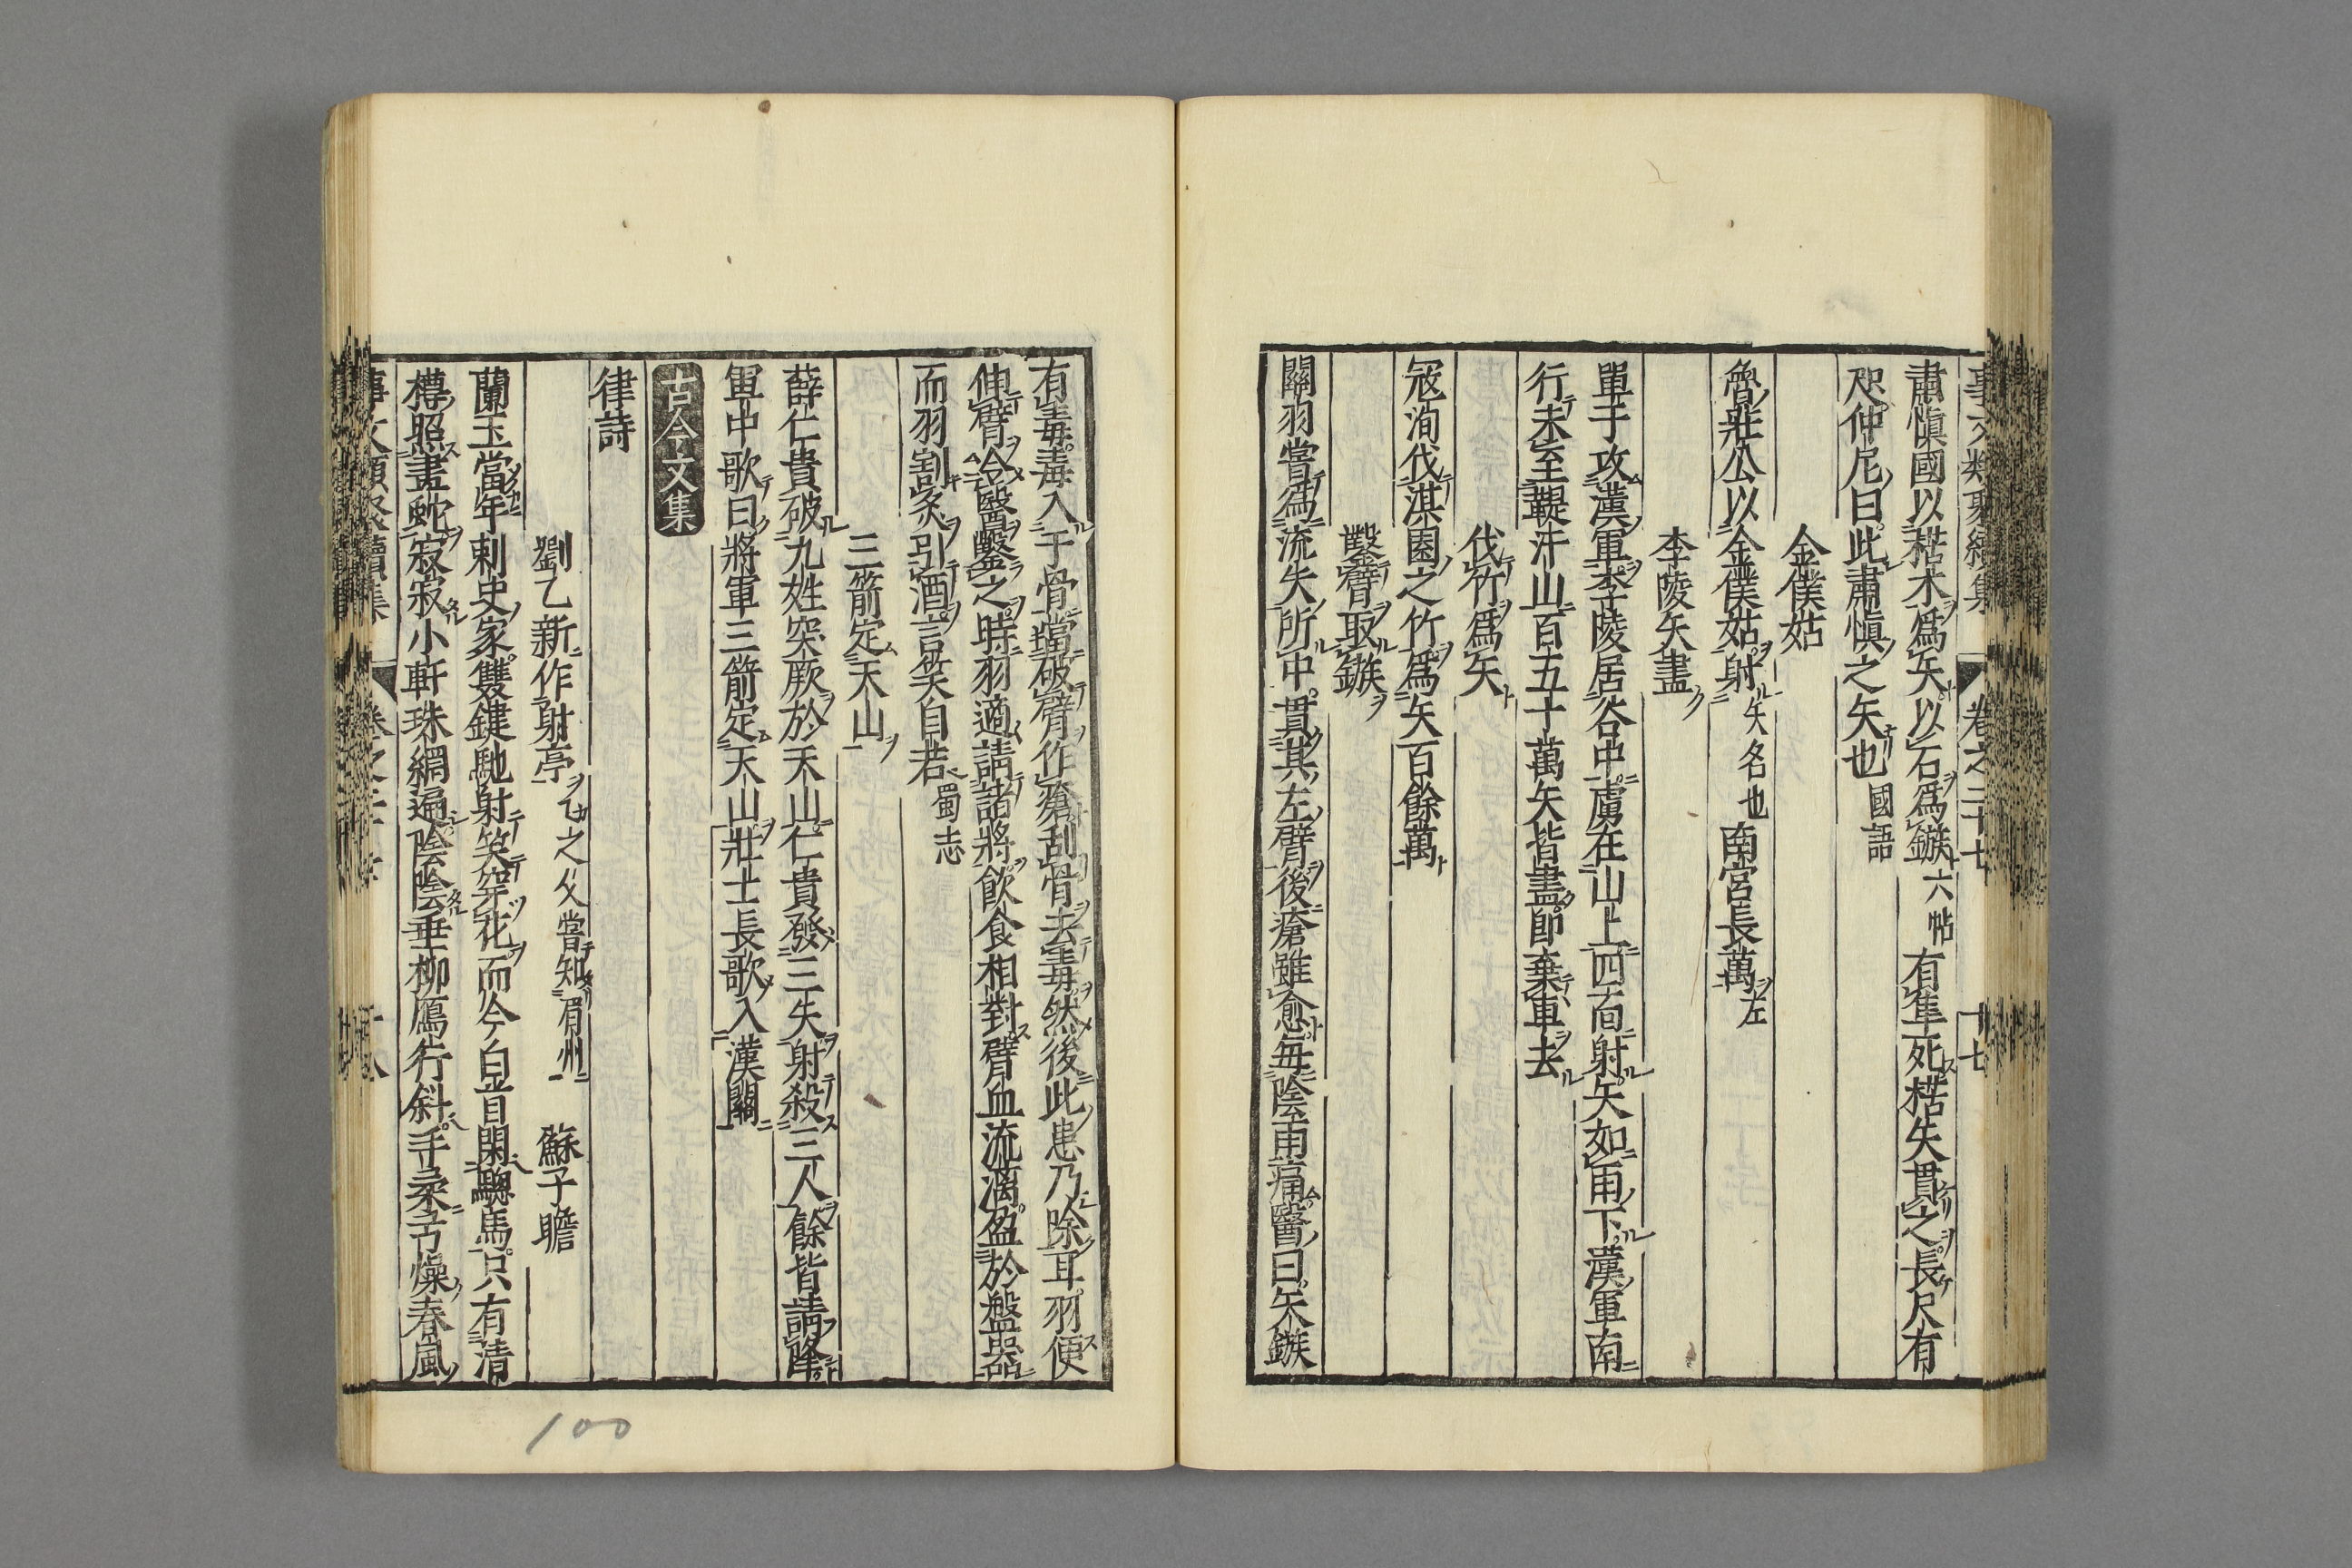 事文類聚續集 卷之二十七 十七
肅愼國以楛木爲矢以石爲鏃六帖有隼死楛矢貫之長尺有
咫仲尼曰此肅愼之矢也國語
金僕姑
魯莊公以金僕姑射矢名也南宮長萬左
李陵矢盡
單于攻漢軍李陵居谷中虜在山上四面射矢如雨下漢軍南
行未至鞮汗山百五十萬矢皆盡卽棄車去
伐竹爲矢
寇洵伐淇園之竹爲矢百餘萬
鑿臂取鏃
關羽嘗爲流矢所中貫其左臂後瘡雖愈每陰雨痛醫曰矢鏃
有毒毒入于骨當破臂作瘡刮骨去毒然後此患乃除耳羽便
伸臂令醫鑿之時羽適請諸將飮食相對臂血流漓盈於盤器
而羽割炙引酒言笑自若蜀志
三箭定天山
薛仁貴破九姓突厥於天山仁貴發三矢射殺三人餘皆請降
軍中歌曰將軍三箭定天山壯士長歌入漢關
古今文集
律詩
劉乙新作射亭乙之父嘗知眉州 蘇子瞻
蘭玉當年刺史家雙鞬馳射笑穿花而今白首閑驄馬只有淸
樽照畫蛇寂寂小軒珠網遍陰陰垂柳鴈行斜手柔弓燥春風
事文類聚續集 卷之二十七 十八
100